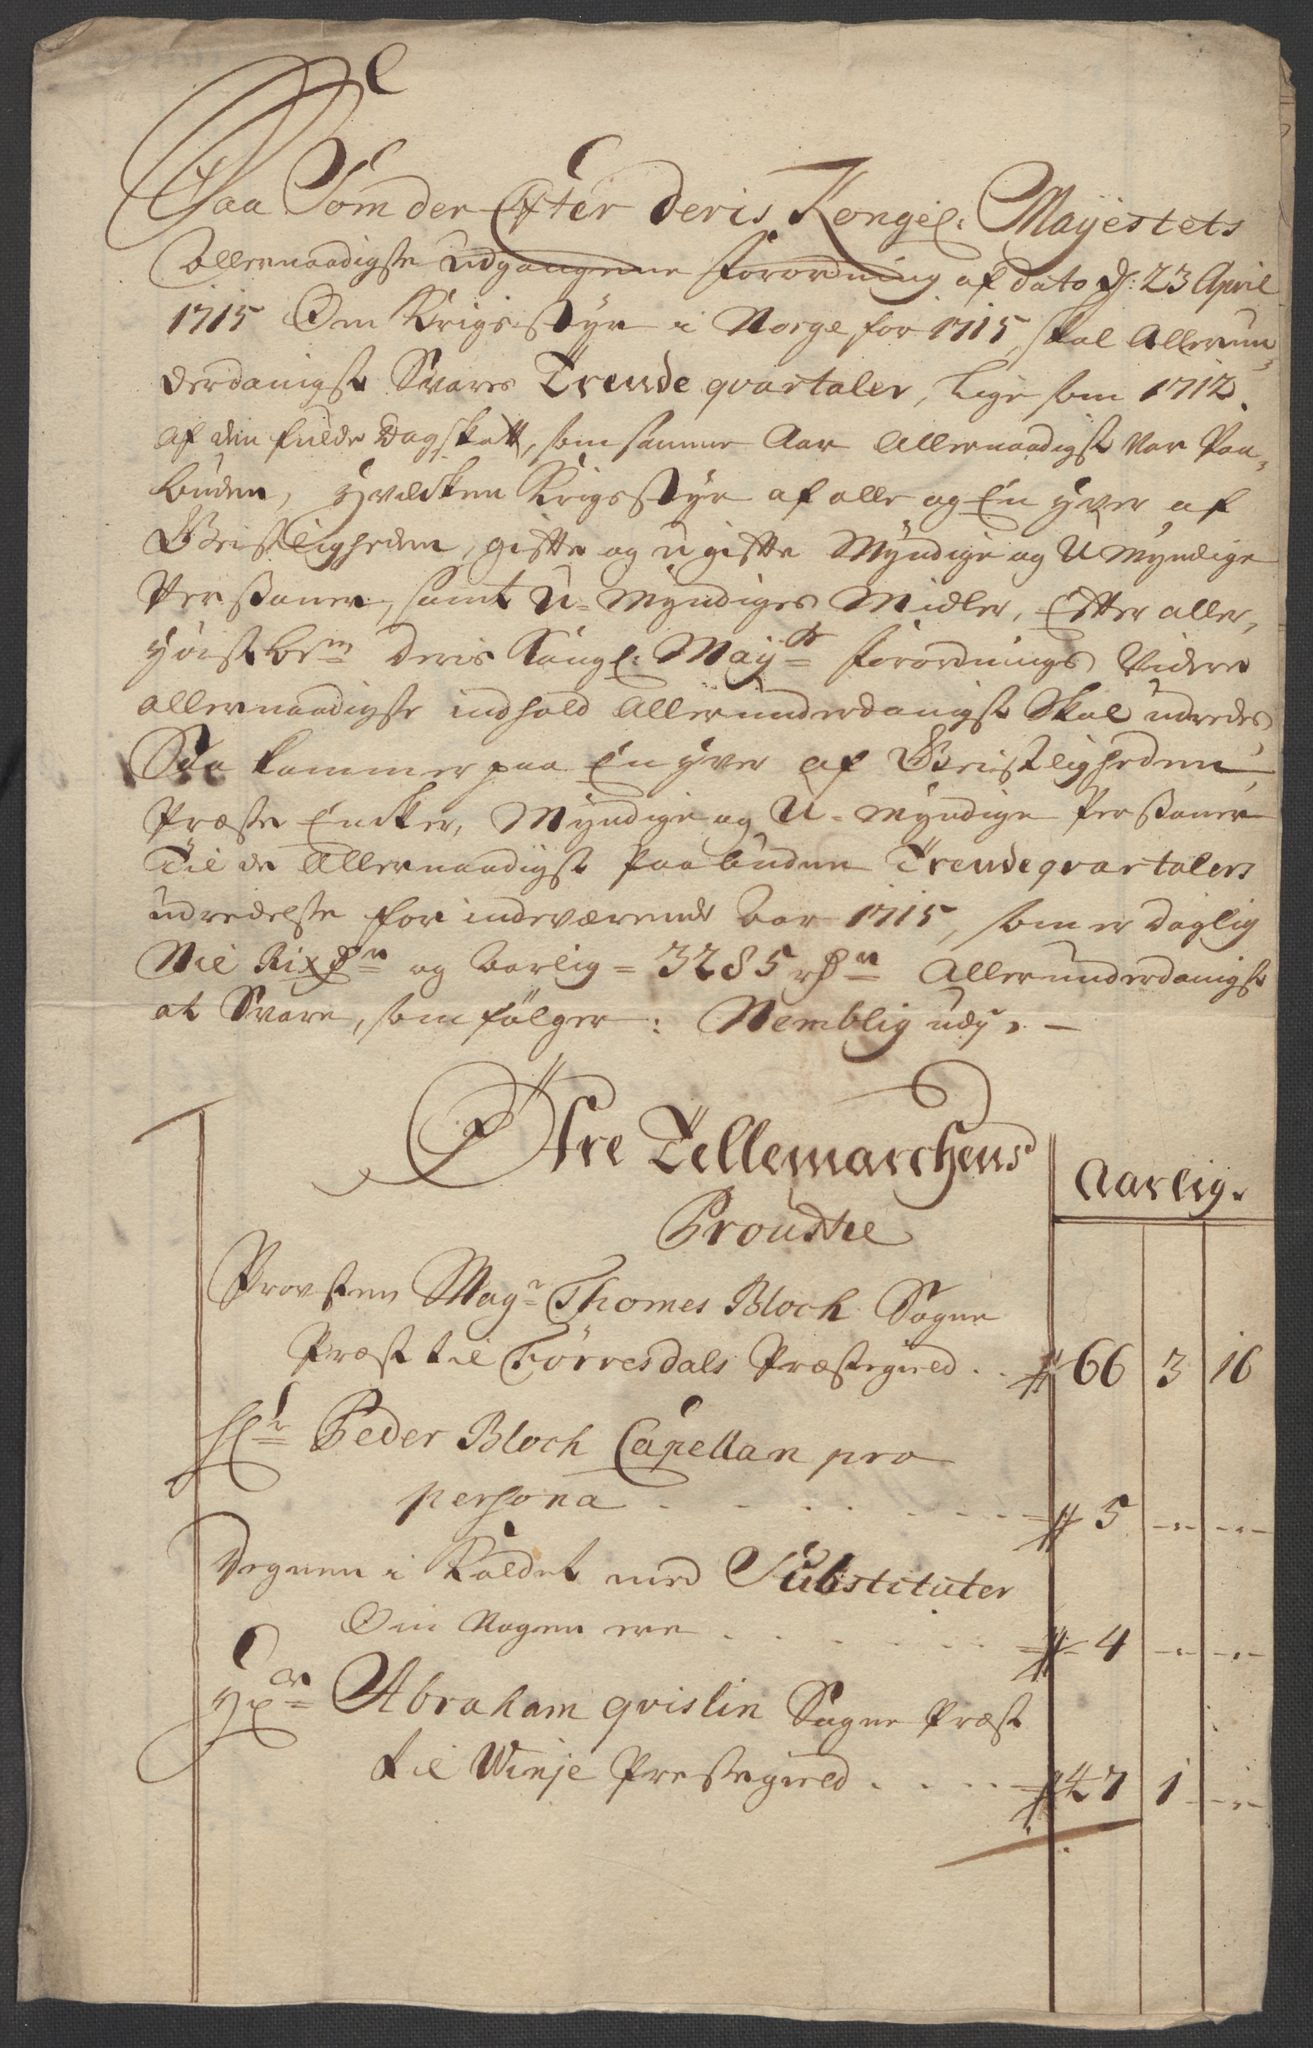 Saa Som der Efter Deris Kongel: Mayestets
Allernaadigste udgangene Forordning af dato d: 23 April
1715 Om Krigs-styr i Norge for 1715, skal Allerun-
derdanigst Svares Trende qvartaler, lige som 1712.
af den fulde Dagskatt, som samme Aar Allernaadigst var Paa-
buden, hvilcken Krigsstyr af alle og En hver af
Geistligheden, gifte og ugifte Myndige og Umyndige
Persaaner, samt U-Myndiges Midler, Efter aller-
høist bem Deris Kongl: Mayst Forordnings Videre
allernaadigste indhold Allerunderdanigst Skal udredes
Da kommer paa En hver af Geistligheden,
Præste Encker, Myndige og U-myndige Persaaner
Til de Allernaadigst Paabudne Trende qvartalers
udredelse for indeværende Aar 1715, som er daglig
Nie Rixdr og Aarlig = 3285 rdr Allerunderdanigst
at Svare, som følger: Nemblig udj. -
Øfre Tellemarchens
Aarlig.
Proustie
Provsten Magr Thomes Bloch Sogne
Præst til Tørresdals Præstegield . . 66 3 16
Hr Peder Bloch Capellan pro
persona . . . . . . 5 - -
Degnen i Kaldet med Substituter
Om Nogen ere . . . . . . 4 - -
Hr Abraham qvislin Sogne Præst
til Winje Prestegield . . . . 47 1 -